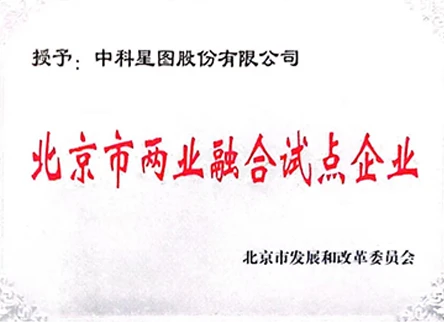 授予：中科星图股份有限公司
北京市两业融合试点企业
北京市发展和改革委员会